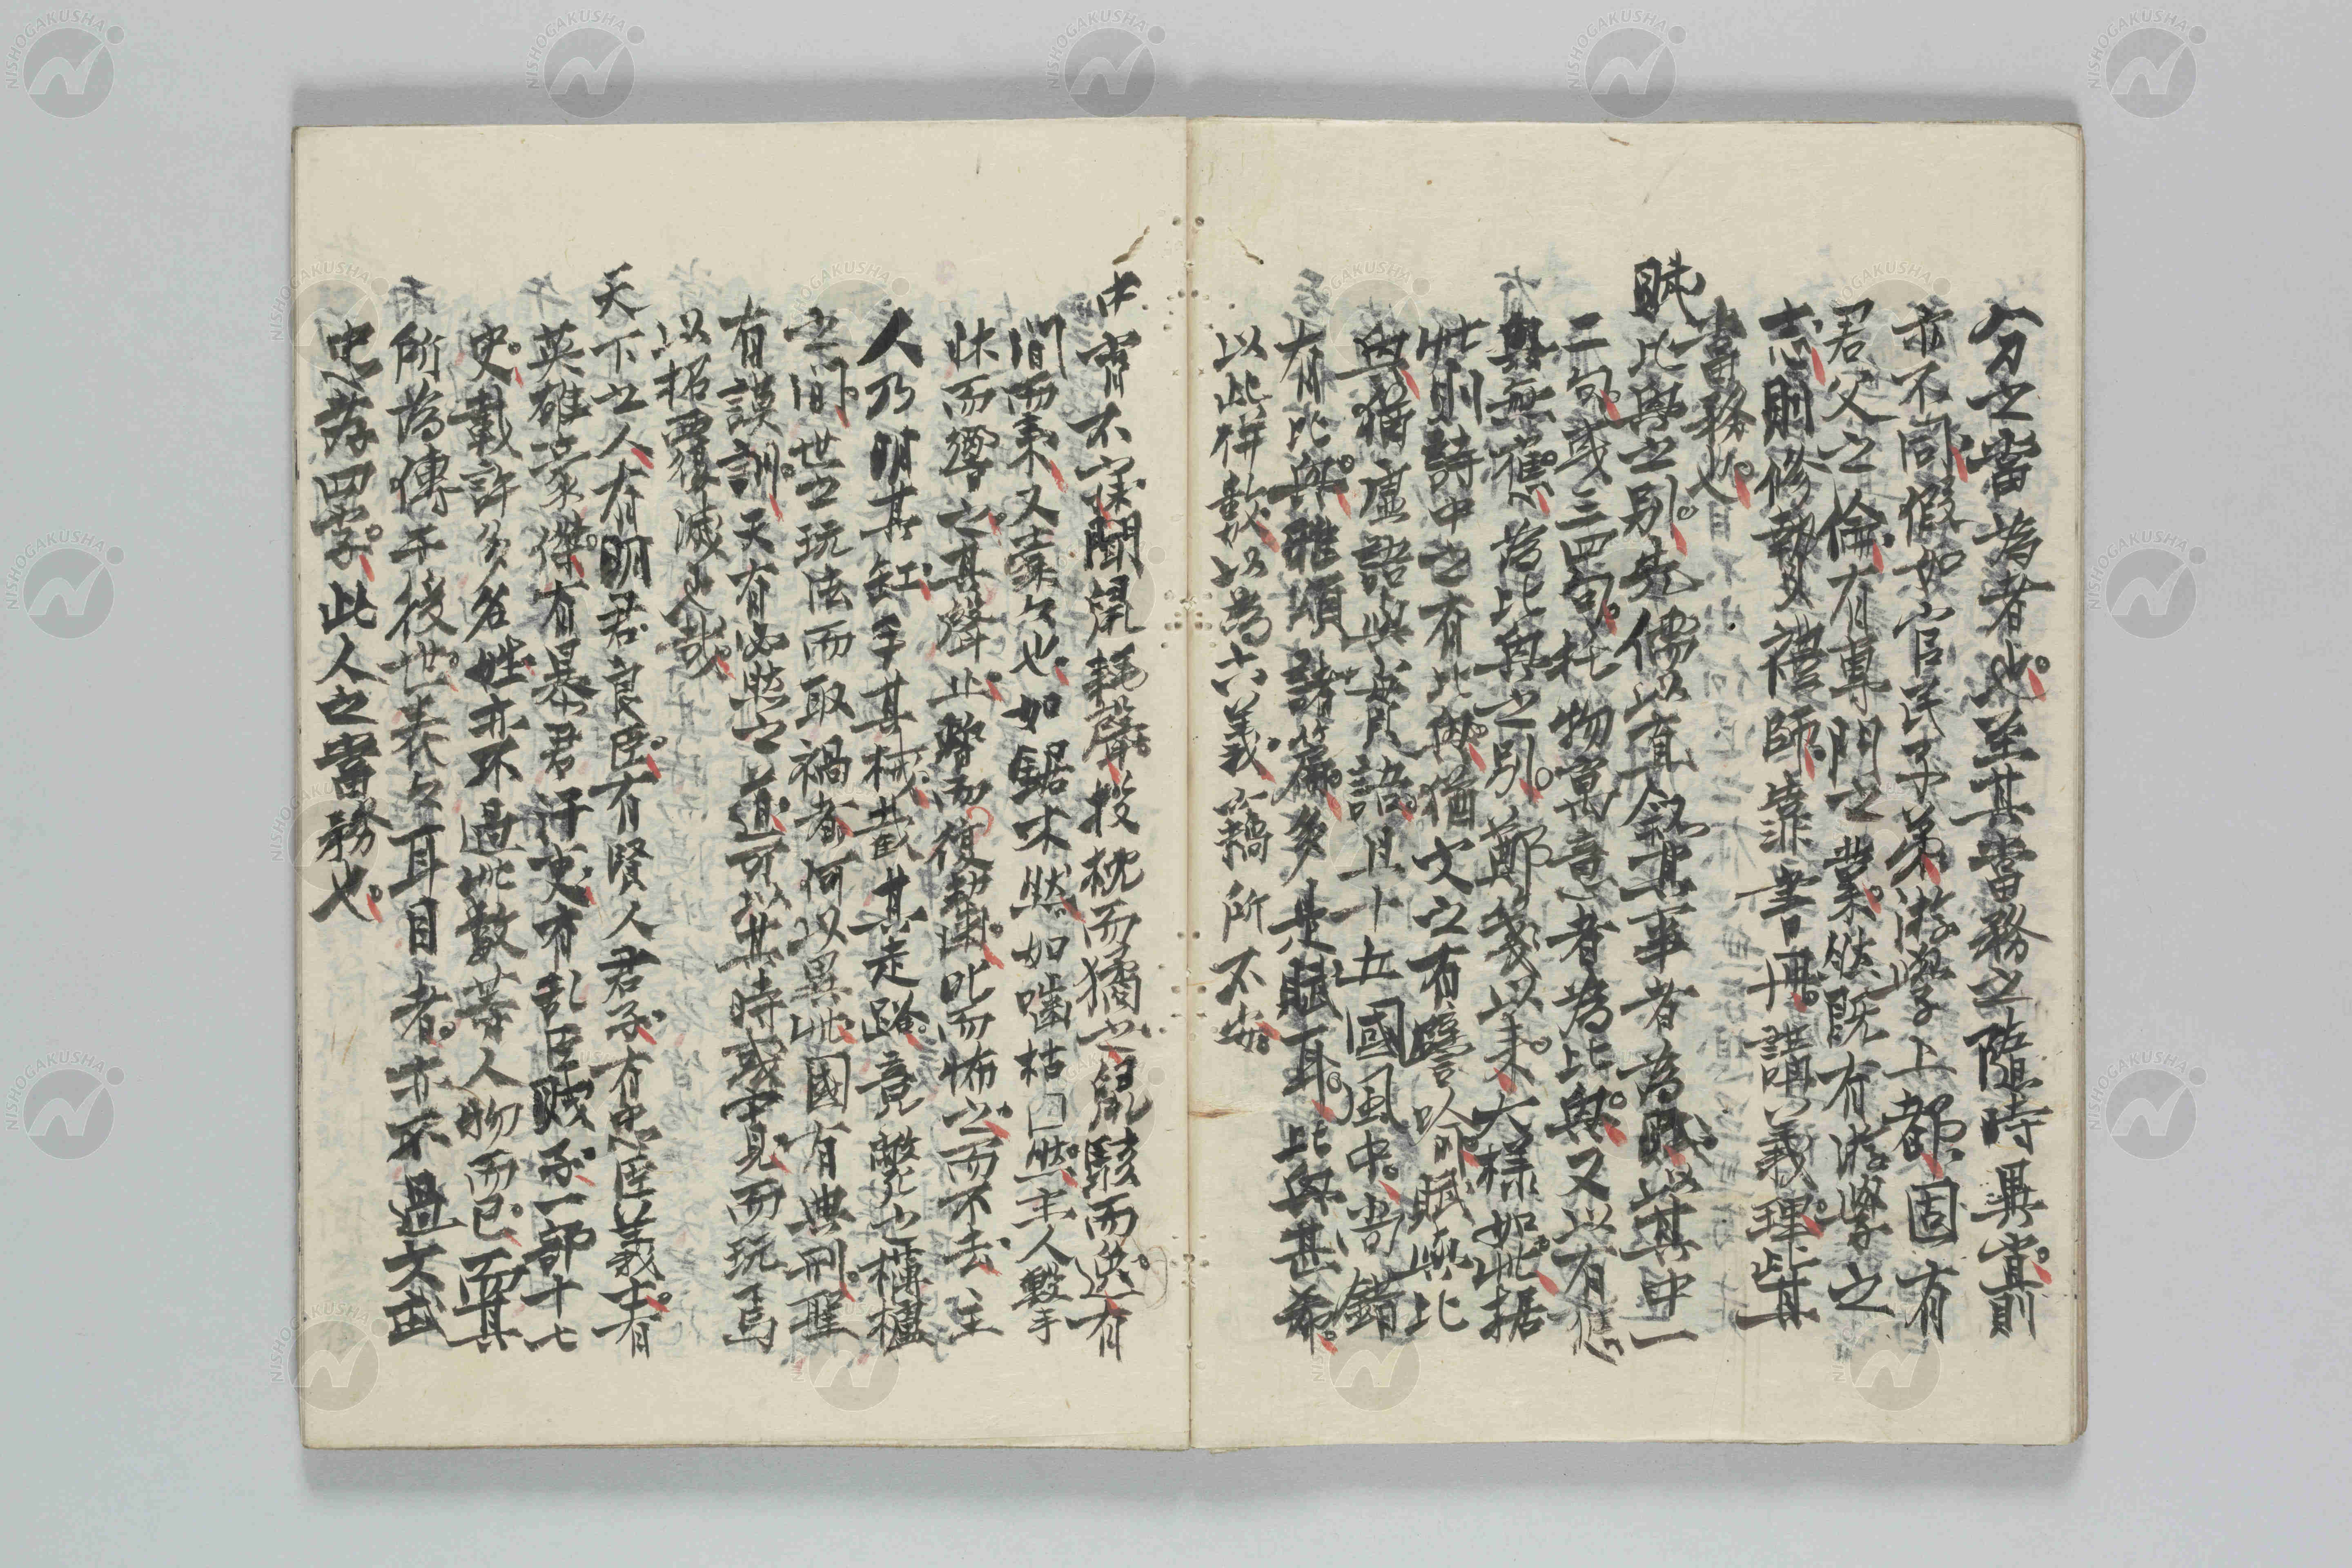 分之當為者也至其當務之隨時異貴則
亦不同假如官民子弟游學上都固有
君父之倫有專門之業然既有游學之
志則修敬禮師靠書冊講義理此其
當務也
賦比興之別先儒以直叙其事者為賦以其中一
二句或三四句托物寓意者為比興又以有應
與無應為比興之別鄭箋以来大様如此据
此則詩中之有比興猶文之有譬喩賦與比
興猶盧語與實語且十五國風中尚錯
有比興雅頌諸篇多是賦耳比興甚希
以此併數以為六義竊所不安
中宵不寐聞鼠耗聲投枕而獝之鼠駭而逸有
間而来又稾々也如鋸木然如嚙枯然主人擊手
牀而嚀之其聲止暫而復耕叱而怖之而不去主
人乃明其缸手其械截其走路竟斃之欂櫨
之間世之玩法而取禍者何以異此國有典刑聖
有謨訓天有必然之道可以其時或中見而玩焉
以招覆滅也哉
天下之人有明君良臣有賢人君子有忠臣義士有
英雄豪傑有暴君汙吏有乱臣賊子一部十七
史載許多名姓亦不過此數等人物而已而其
所為傳于後世表々耳目者亦不過文武
忠孝四字此人之當務也
NISHOGAKUSHA